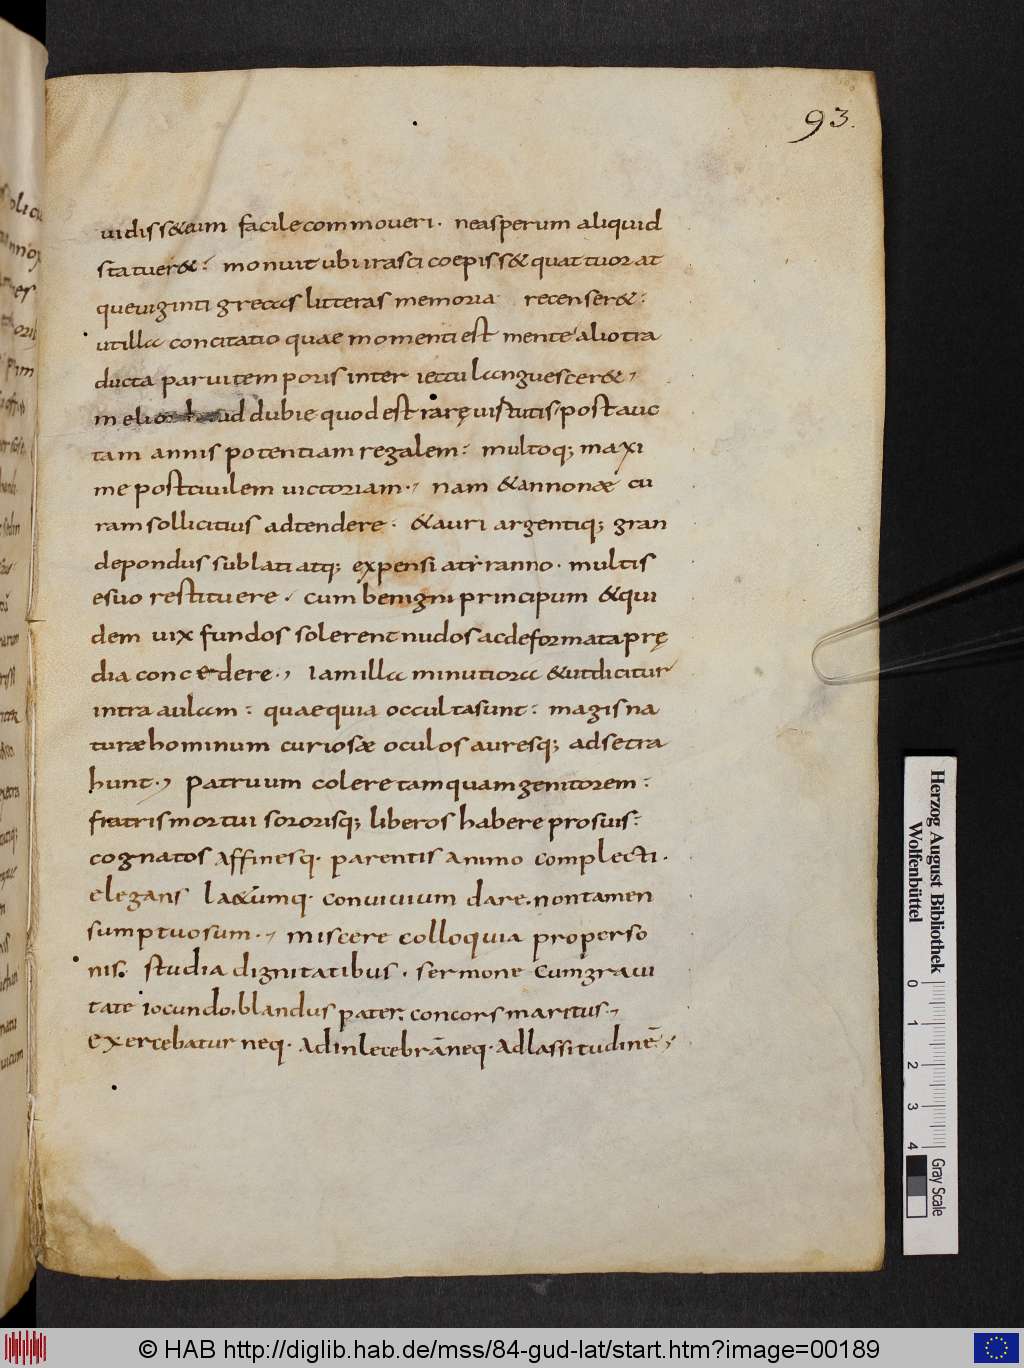 93.
uidiss&eum facile commoueri. neasperum aliquid
statuer&: monuit ubi irasci coepiss& quattuor at
queuiginti grecas litteras memoria recenser&:
utilla concitatio quae momenti est mente alio tra
ducta parui temporis inter iectu languescer&,
melior haud dubie quod est rarę uirtutis, post auc
tam annis potentiam regalem: multoq; maxi
me post ciuilem uictoriam., nam &annonae cu
ram sollicitius adtendere. &auri argentiq; gran
depondus sublati atq; expensi a tyranno. multis
esuo restituere. cum benigni principum &qui
dem uix fundos solerent nudos ac deformata prę
dia concedere., Iam illa minutiora &utdicitur
intra aulam: quae quia occulta sunt: magis na
turae hominum curiosae oculos auresq; ad se tra
hunt., patruum colere tamquam genitorem:
fratris mortui sororisq; liberos habere pro suis:
cognatos affinesq. parentis animo complecti.
elegans la&umq. conuiuium dare. non tamen
sumptuosum., miscere colloquia pro perso
nis. studia dignitatibus. sermone cum graui
tate iocundo. blandus pater: concors maritus.,
exercebatur neq. ad inlecebrā neq. ad lassitudinē.,
Herzog August Bibliothek
Wolfenbüttel
0 1 2 3 4
Gray Scale
© HAB http://diglib.hab.de/mss/84-gud-lat/start.htm?image=00189